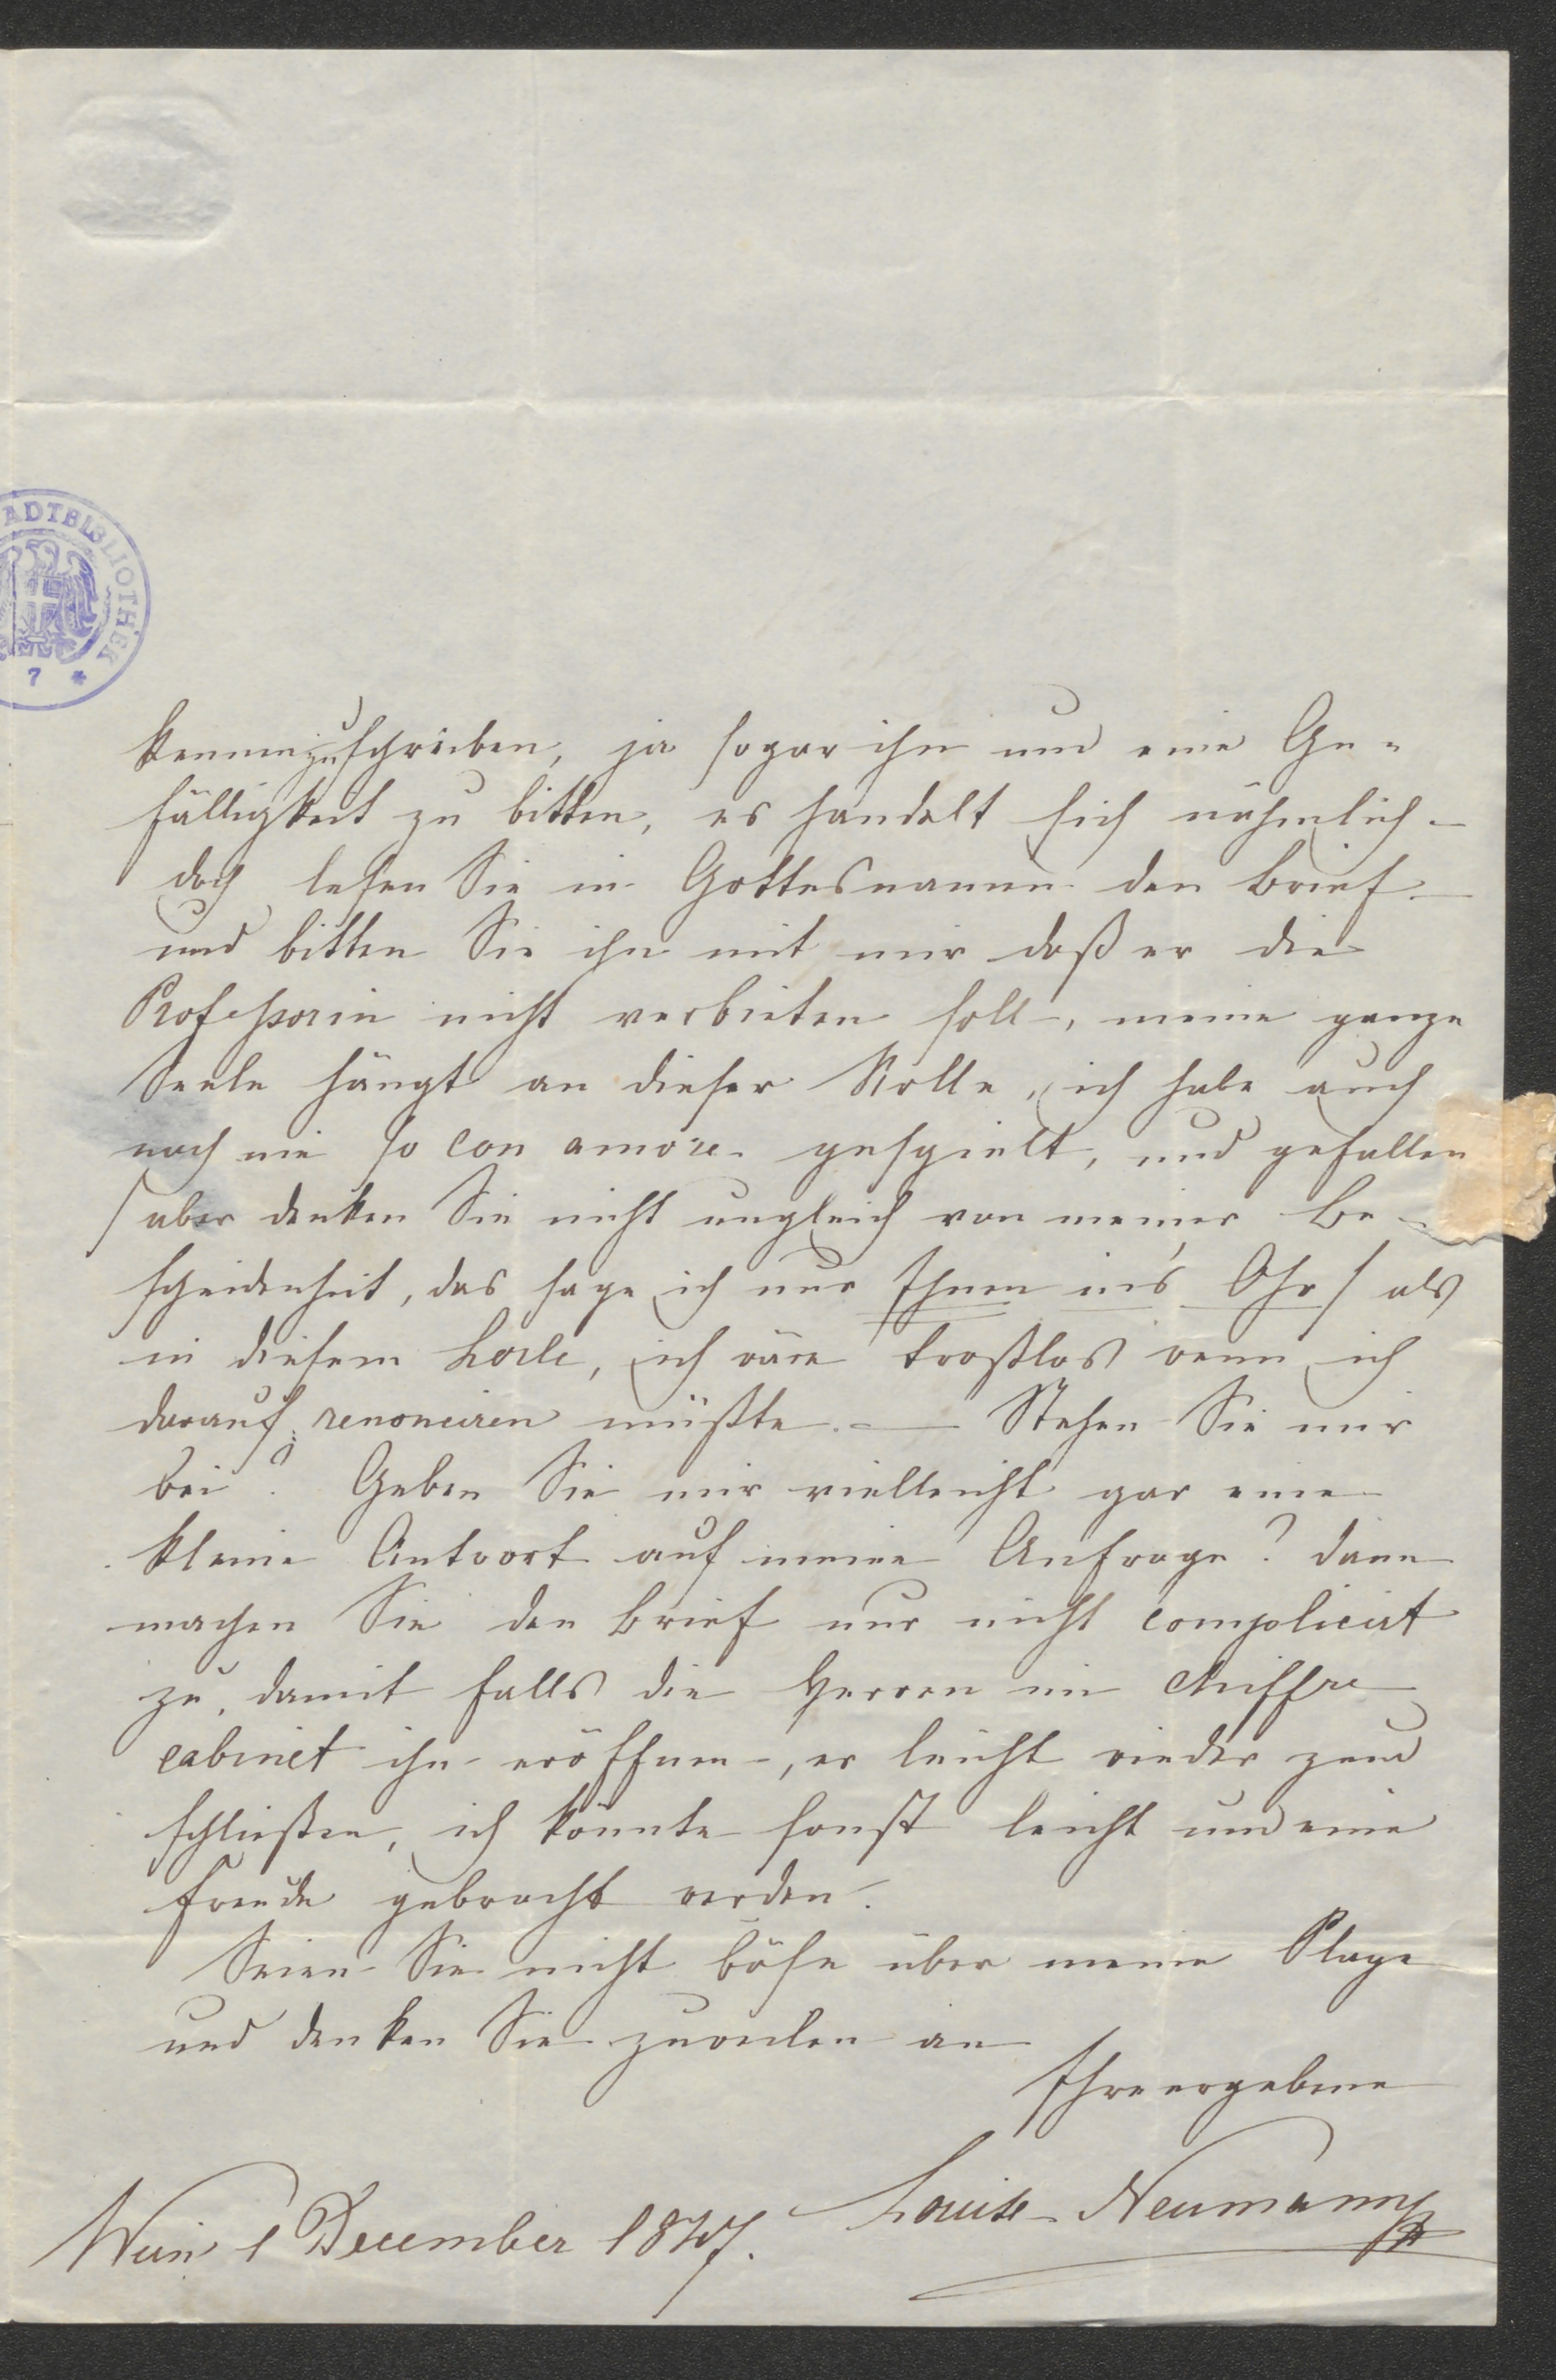 STADTBIBLIOTHEK
7 *
kennenzuschreiben, ja sogar ihn um eine Ge-
fälligkeit zu bitten, es handelt sich nähmlich –
doch lesen Sie in Gottesnamen den Brief –
und bitten Sie ihn mit mir daß er die
Professorin nicht verbieten soll, meine ganze
Seele hängt an dieser Rolle, ich habe auch
noch nie so con amore gespielt, und gefallen
/ aber denken Sie nicht ungleich von meiner Be-
scheidenheit, das sage ich nur Ihnen in's Ohr / als
in diesem Lorle, ich wäre trostlos wenn ich
darauf renonciren müßte. – Stehen Sie mir
bei? Geben Sie mir vielleicht gar eine
kleine Antwort auf meine Anfrage? dann
machen Sie den Brief nur nicht complicirt
zu, damit falls die Herren im Chiffre
cabinet ihn eröffnen, er leicht wieder zum
schließen, ich könnte sonst leicht um eine
Freude gebracht werden.
Seien Sie nicht böse über meine Plage
und denken Sie zuweilen an
Ihre ergebene
Louise Neumann
Wien 1 December 1847.